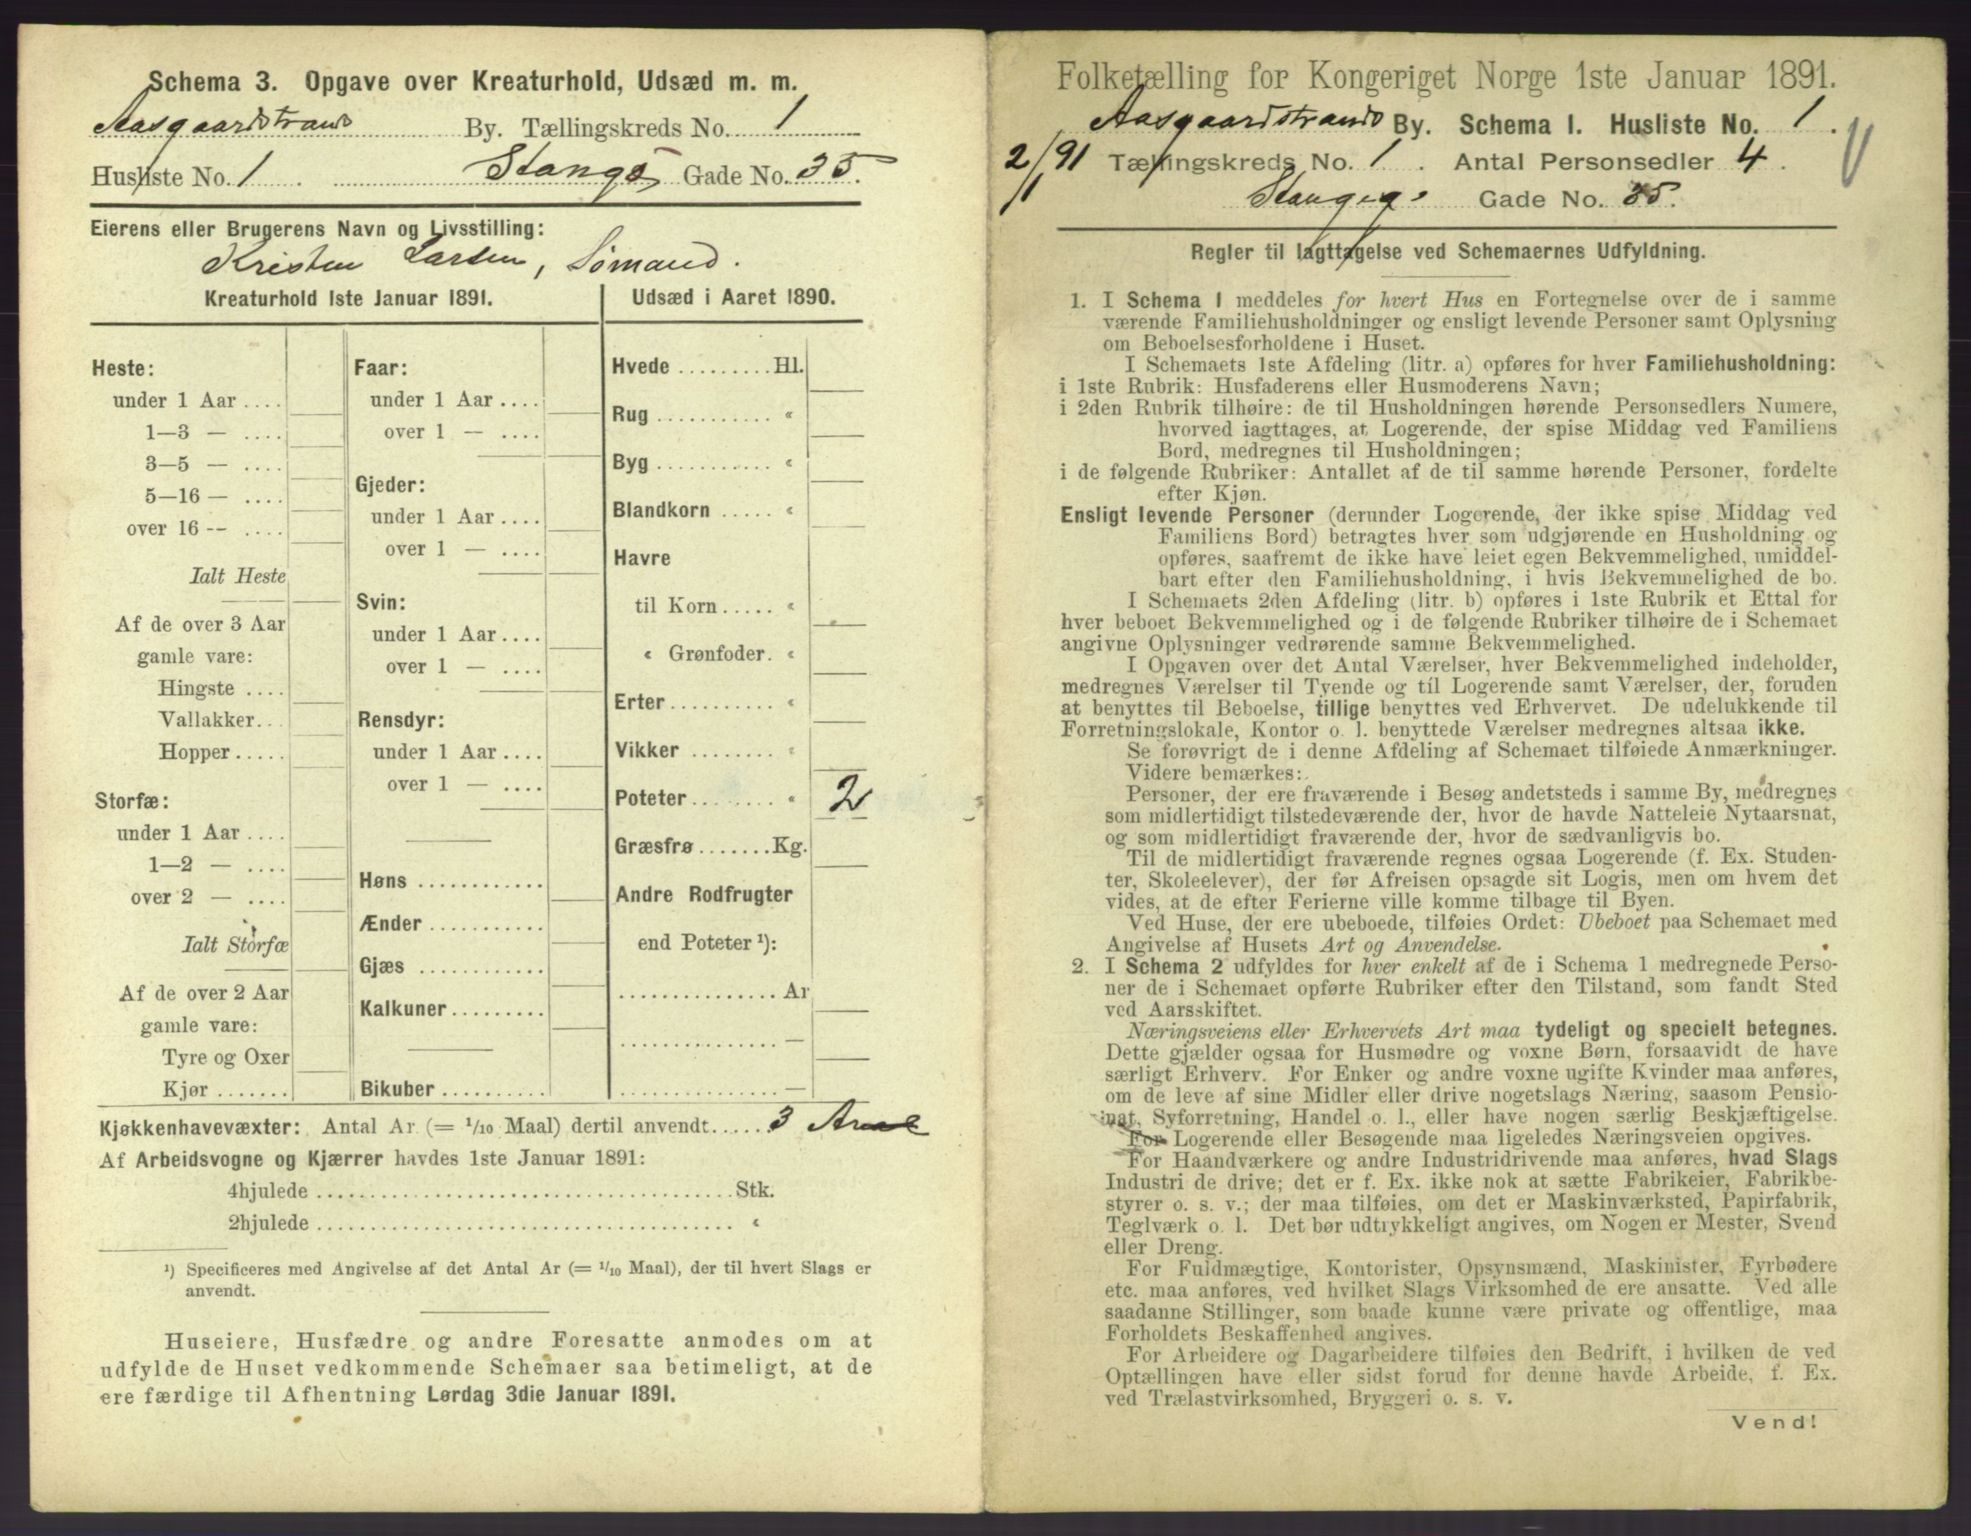 Schema 3. Opgave over Kreaturhold, Udsæd m. m.
Aasgaardstrands By. Tællingskreds No. 1
Husliste No. 1. Stangs Gade No. 35.
Eierens eller Brugerens Navn og Livsstilling:
Kristen Larsen, Sømand.
Kreaturhold 1ste Januar 1891.
Heste:
under 1 Aar ....
1—3 — ....
3—5 — ....
5—16 — ....
over 16 -- ....
Ialt Heste
Af de over 3 Aar
gamle vare:
Hingste ....
Vallakker...
Hopper.....
Storfæ:
under 1 Aar ....
1—2 — ....
over 2 — ....
Ialt Storfæ
Af de over 2 Aar
gamle vare:
Tyre og Oxer
Kjør .......
Faar:
under 1 Aar ....
over 1 — ....
Gjeder:
under 1 Aar ....
over 1 — ....
Svin:
under 1 Aar ....
over 1 — ....
Rensdyr:
under 1 Aar ....
over 1 — ....
Høns ............
Ænder ...........
Gjæs ............
Kalkuner.........
Bikuber ..........
Udsæd i Aaret 1890.
Hvede .........Hl.
Rug ........... «
Byg ........... «
Blandkorn ..... «
Havre
til Korn..... «
« Grønfoder. «
Erter.......... «
Vikker ........ «
Poteter........ « 2
Græsfrø .......Kg.
Andre Rodfrugter
end Poteter ¹):
............... Ar
............... —
............... —
Kjøkkenhavevæxter: Antal Ar (= 1/10 Maal) dertil anvendt...... 3 Ar
Af Arbeidsvogne og Kjærrer havdes 1ste Januar 1891:
4hjulede ......................................Stk.
2hjulede ...................................... «
¹) Specificeres med Angivelse af det Antal Ar (= 1/10 Maal), der til hvert Slags er
anvendt.
Huseiere, Husfædre og andre Foresatte anmodes om at
udfylde de Huset vedkommende Schemaer saa betimeligt, at de
ere færdige til Afhentning Lørdag 3die Januar 1891.
Folketælling for Kongeriget Norge 1ste Januar 1891.
Aasgaardstrands By. Schema 1. Husliste No. 1.
2/1 91 Tællingskreds No. 1. Antal Personsedler 4.
Gade No. 35.
Regler til Iagttagelse ved Schemaernes Udfyldning.
1. I Schema 1 meddeles for hvert Hus en Fortegnelse over de i samme
værende Familiehusholdninger og ensligt levende Personer samt Oplysning
om Beboelsesforholdene i Huset.
I Schemaets 1ste Afdeling (litr. a) opføres for hver Familiehusholdning:
i 1ste Rubrik: Husfaderens eller Husmoderens Navn;
i 2den Rubrik tilhøire: de til Husholdningen hørende Personsedlers Numere,
hvorved iagttages, at Logerende, der spise Middag ved Familiens
Bord, medregnes til Husholdningen;
i de følgende Rubriker: Antallet af de til samme hørende Personer, fordelte
efter Kjøn.
Ensligt levende Personer (derunder Logerende, der ikke spise Middag ved
Familiens Bord) betragtes hver som udgjørende en Husholdning og
opføres, saafremt de ikke have leiet egen Bekvemmelighed, umiddel-
bart efter den Familiehusholdning, i hvis Bekvemmelighed de bo.
I Schemaets 2den Afdeling (litr. b) opføres i 1ste Rubrik et Ettal for
hver beboet Bekvemmelighed og i de følgende Rubriker tilhøire de i Schemaet
angivne Oplysninger vedrørende samme Bekvemmelighed.
I Opgaven over det Antal Værelser, hver Bekvemmelighed indeholder,
medregnes Værelser til Tyende og til Logerende samt Værelser, der, foruden
at benyttes til Beboelse, tillige benyttes ved Erhvervet. De udelukkende til
Forretningslokale, Kontor o. l. benyttede Værelser medregnes altsaa ikke.
Se forøvrigt de i denne Afdeling af Schemaet tilføiede Anmærkninger.
Videre bemærkes:
Personer, der ere fraværende i Besøg andetsteds i samme By, medregnes
som midlertidigt tilstedeværende der, hvor de havde Natteleie Nytaarsnat,
og som midlertidigt fraværende der, hvor de sædvanligvis bo.
Til de midlertidigt fraværende regnes ogsaa Logerende (f. Ex. Studen-
ter, Skoleelever), der før Afreisen opsagde sit Logis, men om hvem det
vides, at de efter Ferierne ville komme tilbage til Byen.
Ved Huse, der ere ubeboede, tilføies Ordet: Ubeboet paa Schemaet med
Angivelse af Husets Art og Anvendelse.
2. I Schema 2 udfyldes for hver enkelt af de i Schema 1 medregnede Perso-
ner de i Schemaet opførte Rubriker efter den Tilstand, som fandt Sted
ved Aarsskiftet.
Næringsveiens eller Erhvervets Art maa tydeligt og specielt betegnes.
Dette gjælder ogsaa for Husmødre og voxne Børn, forsaavidt de have
særligt Erhverv. For Enker og andre voxne ugifte Kvinder maa anføres,
om de leve af sine Midler eller drive nogetslags Næring, saasom Pensio-
nat, Syforretning, Handel o. l., eller have nogen særlig Beskjæftigelse.
For Logerende eller Besøgende maa ligeledes Næringsveien opgives.
For Haandværkere og andre Industridrivende maa anføres, hvad Slags
Industri de drive; det er f. Ex. ikke nok at sætte Fabrikeier, Fabrikbe-
styrer o. s. v.; der maa tilføies, om det er Maskinværksted, Papirfabrik,
Teglværk o. l. Det bør udtrykkeligt angives, om Nogen er Mester, Svend
eller Dreng.
For Fuldmægtige, Kontorister, Opsynsmænd, Maskinister, Fyrbødere
etc. maa anføres, ved hvilket Slags Virksomhed de ere ansatte. Ved alle
saadanne Stillinger, som baade kunne være private og offentlige, maa
Forholdets Beskaffenhed angives.
For Arbeidere og Dagarbeidere tilføies den Bedrift, i hvilken de ved
Optællingen have eller sidst forud for denne havde Arbeide, f. Ex.
ved Trælastvirksomhed, Bryggeri o. s. v.
Vend!